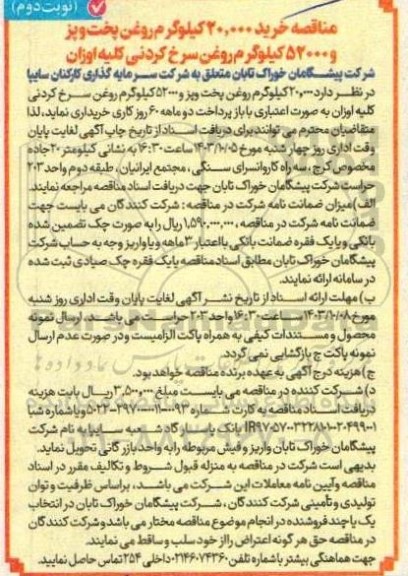 (نوبت دوم)
مناقصه خرید ۲۰,۰۰۰ کیلوگرم روغن پخت و پز
و ۵۲۰۰۰ کیلوگرم روغن سرخ کردنی کلیه اوزان
شرکت پیشگامان خوراک تابان متعلق به شرکت سرمایه گذاری کارکنان سایپا
در نظر دارد ۲۰,۰۰۰ کیلوگرم روغن پخت و پز و ۵۲۰۰۰ کیلوگرم روغن سرخ کردنی
کلیه اوزان به صورت اعتباری با باز پرداخت دو ماهه ۶۰ روز کاری خریداری نماید، لذا
متقاضیان محترم می توانند برای دریافت اسناد از تاریخ چاپ آگهی لغایت پایان
وقت اداری روز چهار شنبه مورخ ۱۴۰۳/۱۰/۰۵ ساعت ۱۶:۳۰ به نشانی کیلومتر ۲۰ جاده
مخصوص کرج، سه راه کاروانسرای سنگی، مجتمع ایرانیان، طبقه دوم واحد ۲۰۳
حراست شرکت پیشگامان خوراک تابان جهت دریافت اسناد مناقصه مراجعه نمایند.
الف) میزان ضمانت نامه شرکت در مناقصه: شرکت کنندگان می بایست جهت
ضمانت نامه شرکت در مناقصه، ۱,۵۹۰,۰۰۰,۰۰۰ ریال را به صورت چک تضمین شده
بانکی و یا یک فقره ضمانت بانکی با اعتبار ۳ ماهه و یا واریز وجه به حساب شرکت
پیشگامان خوراک تابان مطابق اسناد مناقصه یا یک فقره چک صیادی ثبت شده
در سامانه ارائه نمایند.
ب) مهلت ارائه اسناد از تاریخ نشر آگهی لغایت پایان وقت اداری روز شنبه
مورخ ۱۴۰۳/۱۰/۰۸ ساعت ۱۶:۳۰ واحد ۲۰۳ حراست می باشد. ارسال نمونه
محصول و مستندات کیفی به همراه پاکت الزامیست و در صورت عدم ارسال
نمونه پاکت ج بازگشایی نمی گردد.
ج) هزینه درج آگهی به عهده برنده مناقصه خواهد بود.
د) شرکت کننده در مناقصه می بایست مبلغ ۳,۵۰۰,۰۰۰ ریال بابت هزینه
دریافت اسناد مناقصه به کارت شماره و یا شماره شبا
بانک پاسارگاد شعبه سایپا به نام شرکت
پیشگامان خوراک تابان واریز و فیش مربوطه را به واحد بازرگانی تحویل نماید.
بدیهی است شرکت در مناقصه به منزله قبول شروط و تکالیف مقرر در اسناد
مناقصه و آیین نامه معاملات این شرکت می باشد، براساس ظرفیت و توان
تولیدی و تأمینی شرکت کنندگان، شرکت پیشگامان خوراک تابان در انتخاب
یک یا چند فروشنده در انجام موضوع مناقصه مختار می باشد و شرکت کنندگان
در مناقصه حق هر گونه اعتراض را از خود سلب و ساقط می نمایند.
جهت هماهنگی بیشتر با شماره تلفن ۰۲۱۴۶۰۷۴۳۶۰ داخلی ۲۵۴ تماس حاصل نمایید.